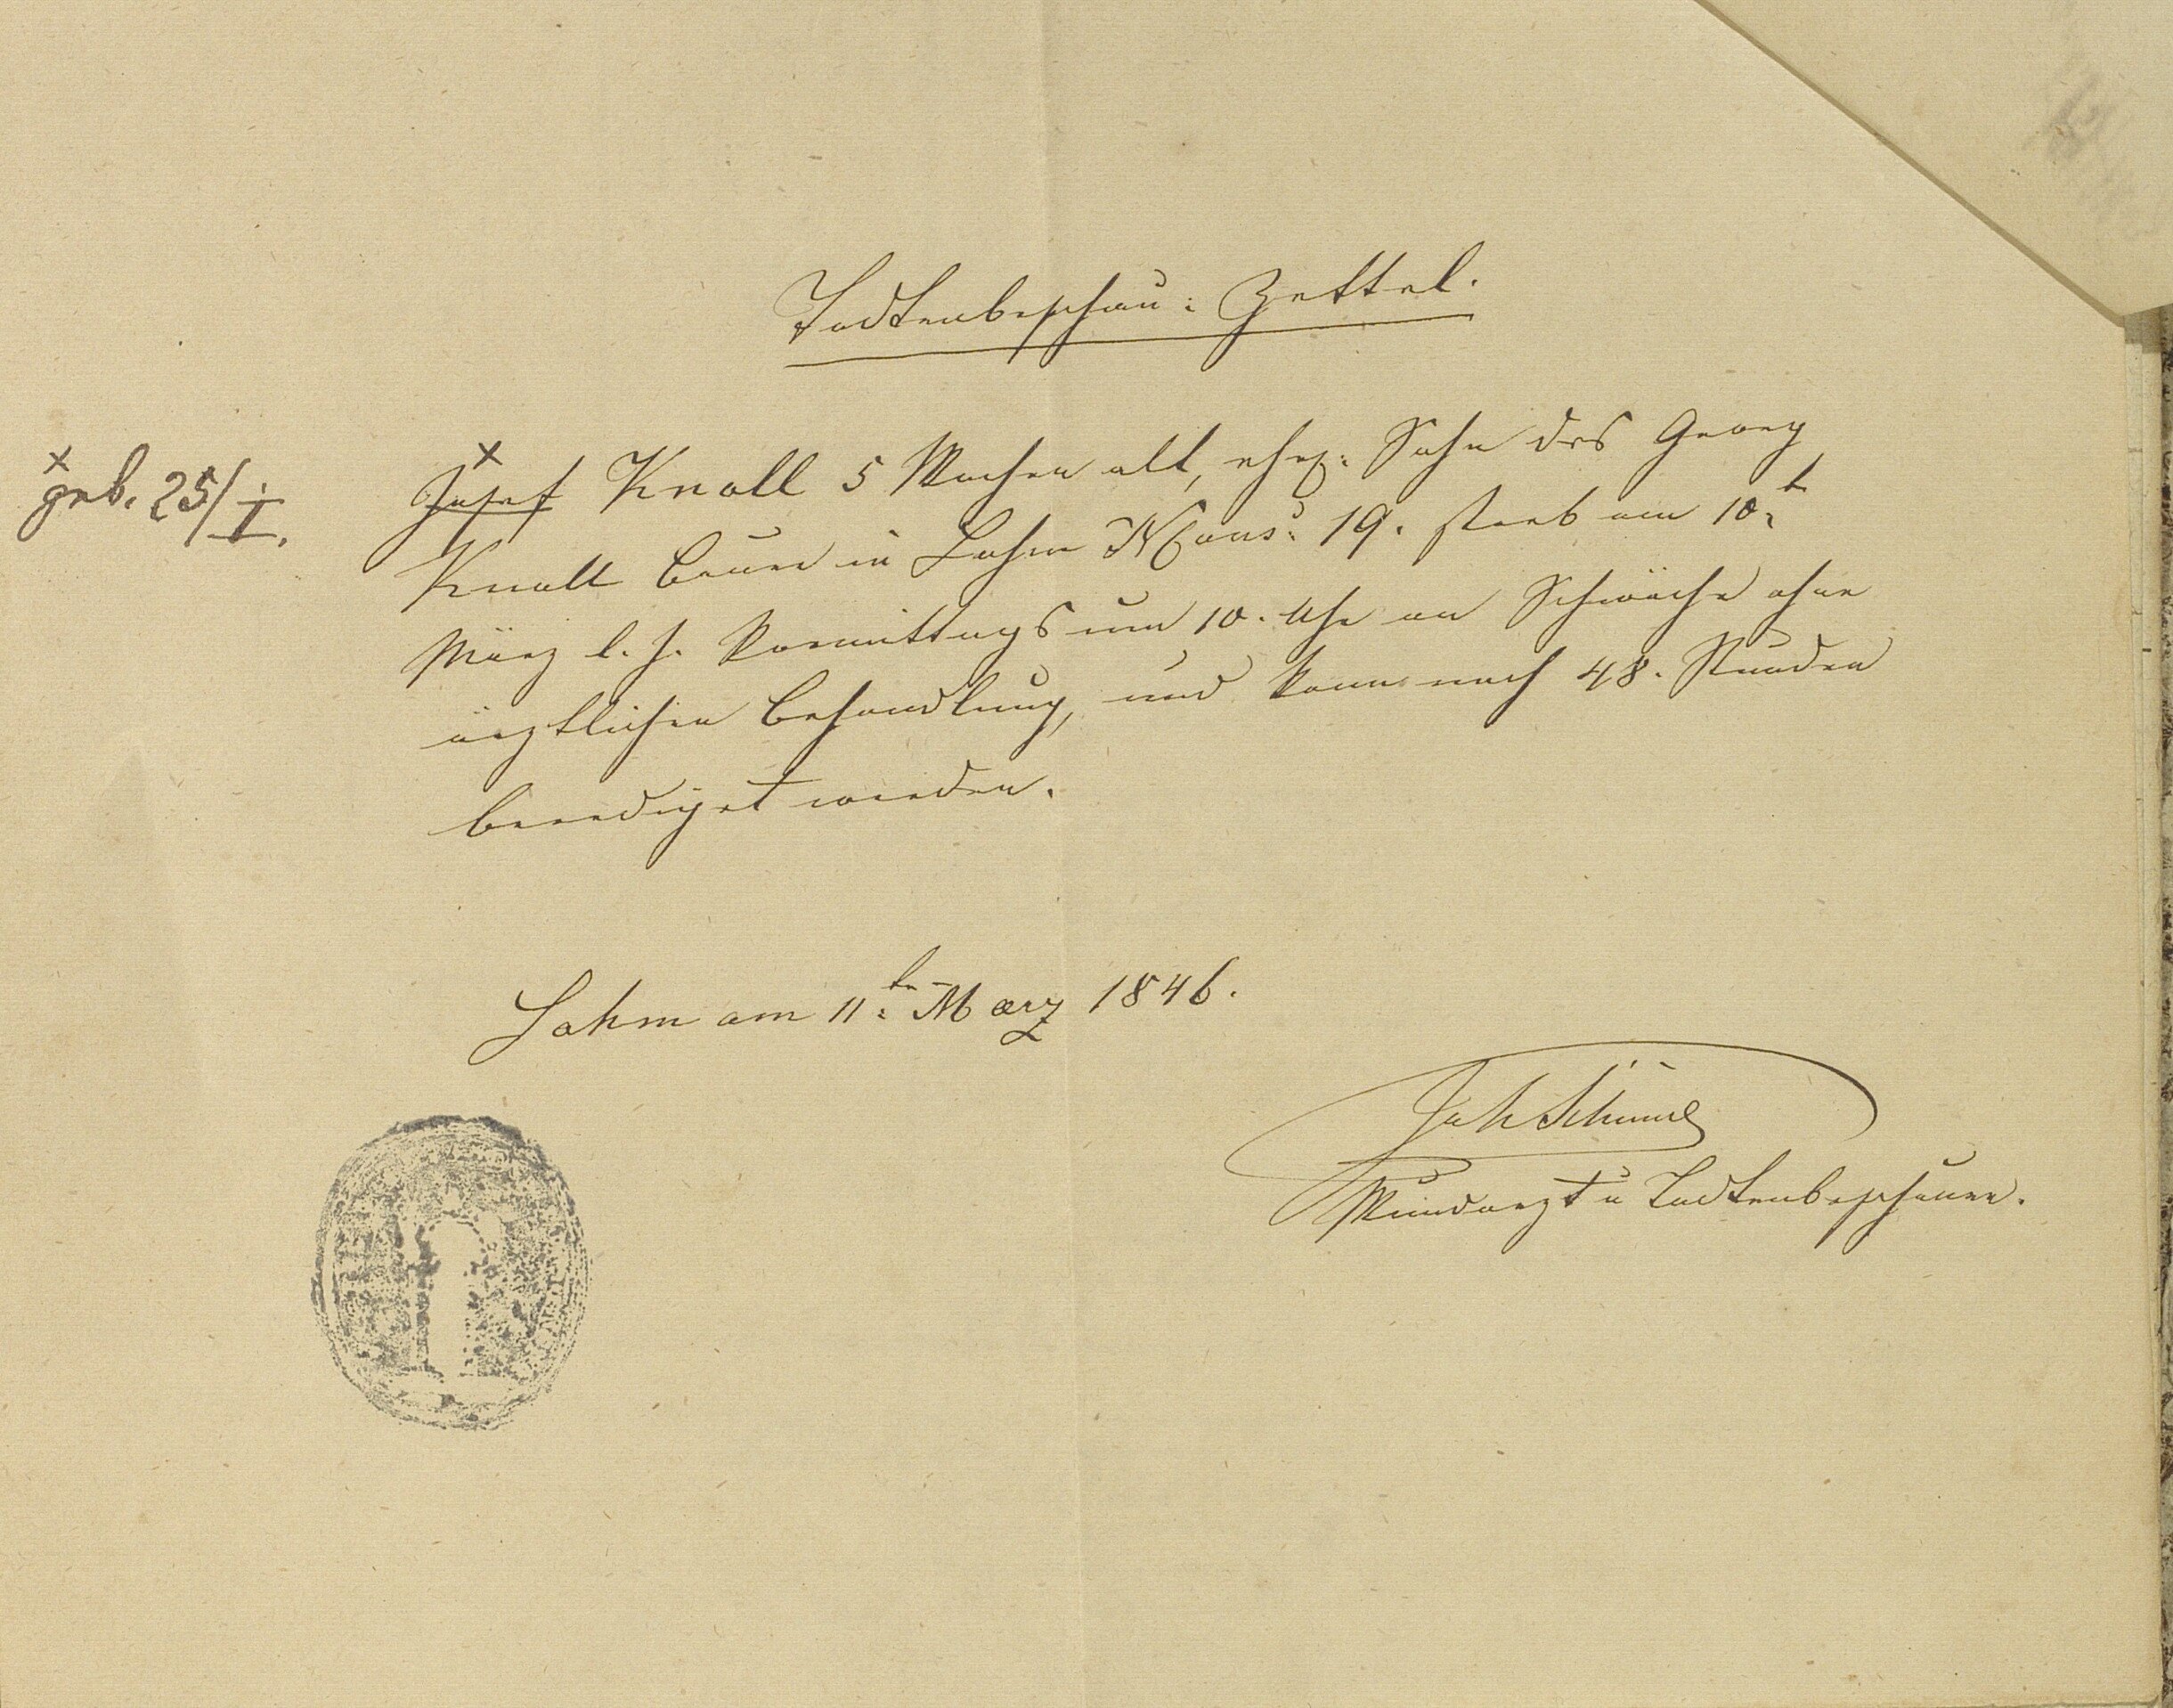 Todtenbeschau: Zettel.
x
geb. 25/I.
x
Josef Knoll 5 Wochen alt, ehe: Sohn des Georg
Knoll Bauer in Lohm NCons: 19. starb am 10t
März l. J. Vormittags um 10. Uhr an Schwäche ohne
ärztlichen Behandlung, und kann nach 48. Stunden
beerdiget werden.
Lohm am 11:tn Maerz 1846.
Joh
Wundarzt u Todtenbeschauer.